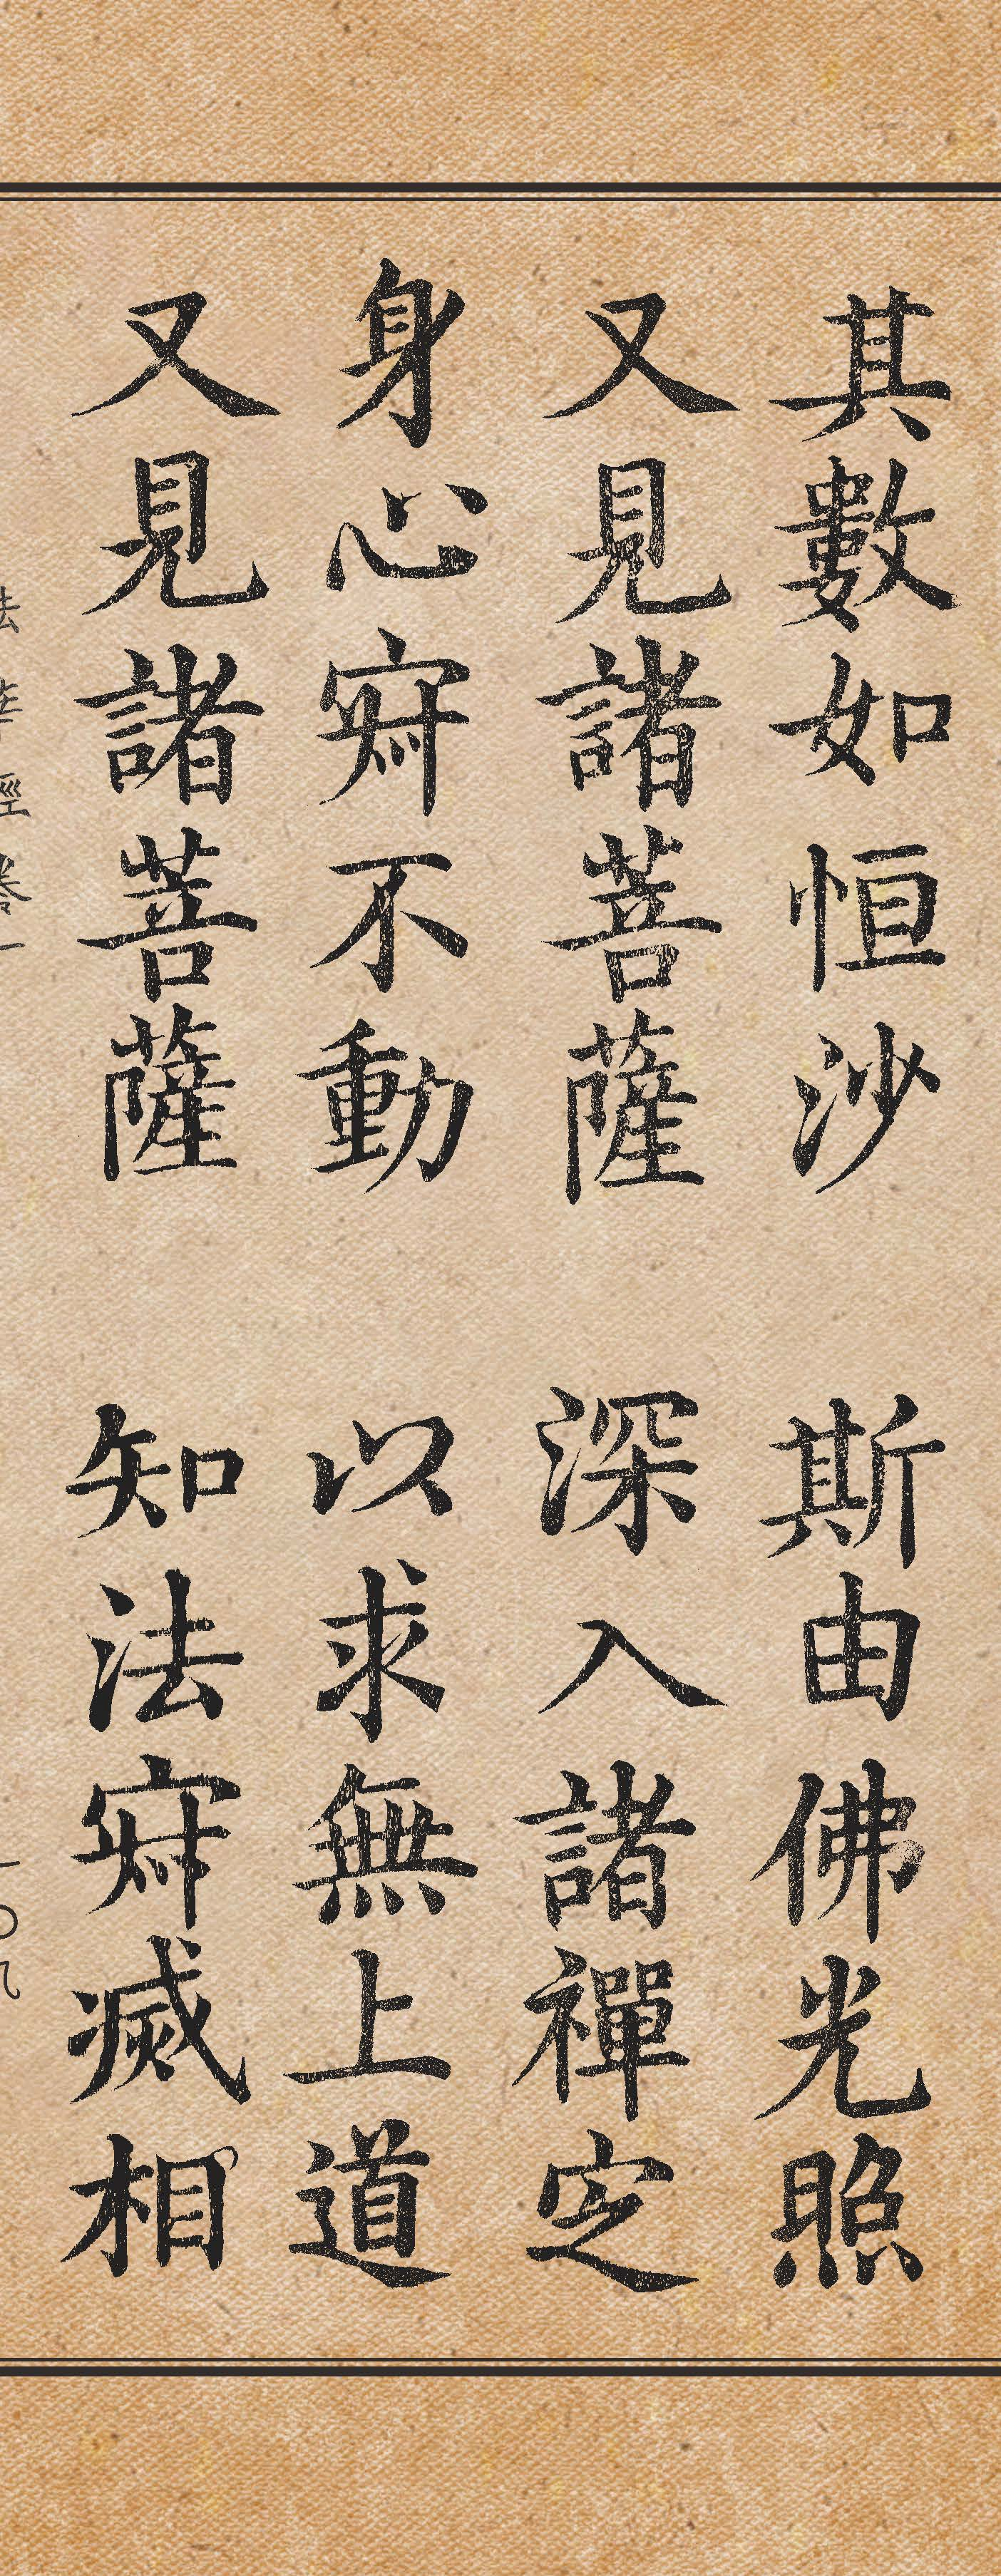 其數如恒沙 斯由佛光照
又見諸菩薩 深入諸禪㝎
身心寂不動 以求無上道
又見諸菩薩 知法寂滅相
法華經卷一 一〇九